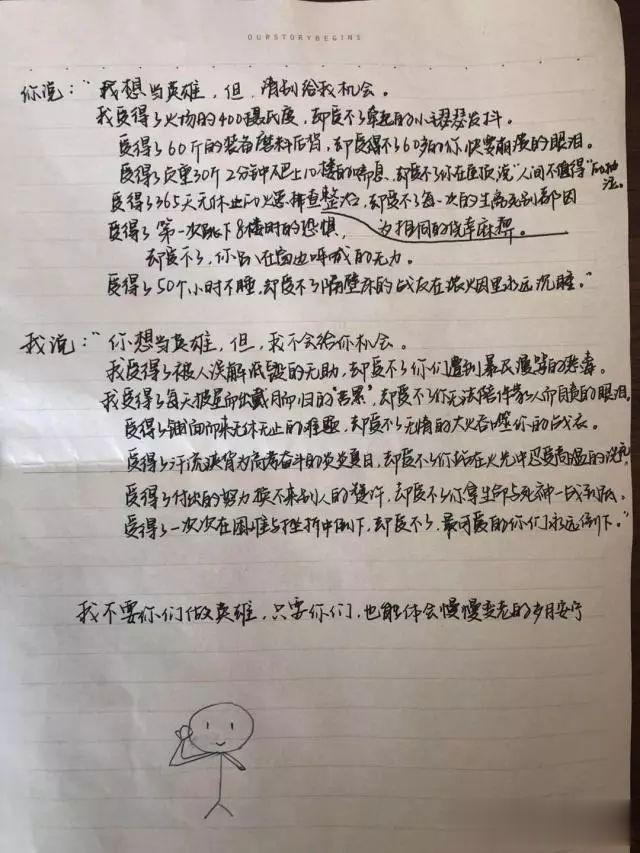 OURSTORYBEGINS
你说：“我想当英雄，但，请别给我机会。
我受得了火场的400摄氏度，却受不了牵起的小手瑟瑟发抖。
受得了60斤的装备磨料后背，却受得不了60岁的你快要崩溃的眼泪。
受得了负重30斤2分钟中不巴上10楼的喘息，却受不了你在医院说“人间不值得”的抽泣。
受得了365天无休止的火灾排查整治，却受不了每一次的生离死别都因
为相同的侥幸麻痹。
受得了第一次跳下8楼时的恐惧，
却受不了，你趴在窗边呼喊的无力。
受得了50个小时不睡，却受不了隔壁床的战友在浓烟里永远沉睡。”
我说：“你想当英雄，但，我不会给你机会。
我受得了被人误解诋毁的无助，却受不了你们遭到暴民谩骂的
我受得了每天披星而出戴月而归的“苦累”，却受不了你无法陪伴家人而自责的眼泪。
受得了迎面而来无休无止的难题，却受不了无情的大火吞噬你的战衣。
受得了汗流浃背为高考奋斗的炎炎夏日，却受不了你站在火光中忍受高温的洗礼
受得了付出的努力换不来别人的赞许，却受不了你拿生命与死神一战到底。
受得了一次次在困难与挫折中倒下，却受不了，最可爱的你们永远倒下。”
我不要你们做英雄，只要你们，也能体会慢慢变老的岁月安宁